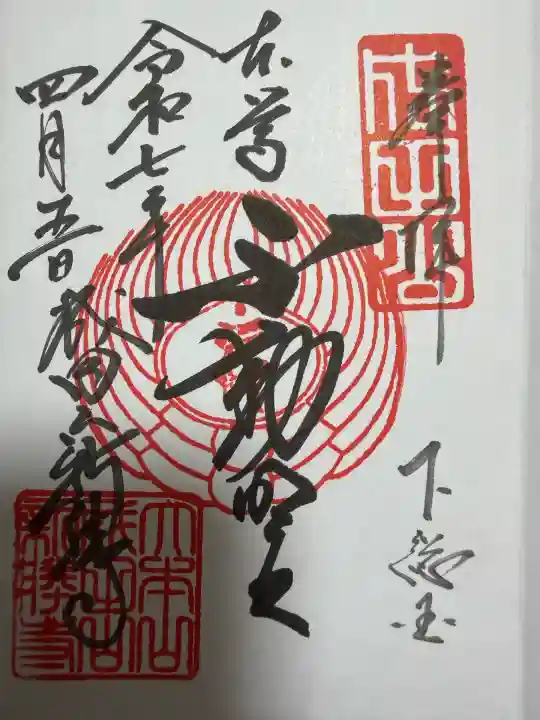 奉拝
下総国
本尊
不動明王
令和七年
四月五日 成田山新勝寺
成田山
大本山成田山新勝寺